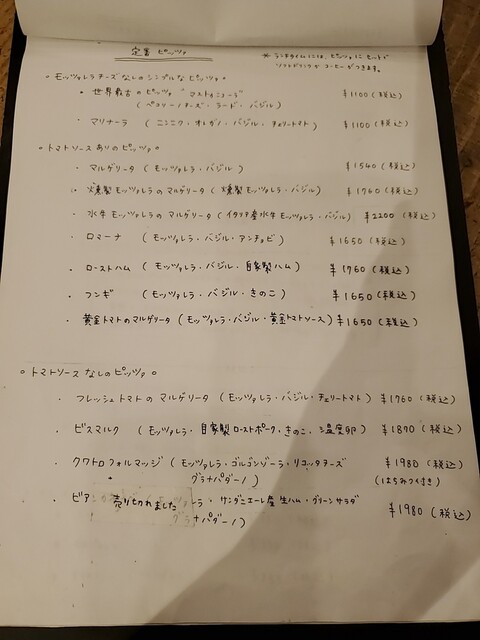 定番 ピッツァ
※ ランチタイムには、ピッツァに セットで
ソフトドリンクか コーヒーがつきます。
○ モッツァレラチーズなしのシンプルなピッツァ ○
・ 世界最古のピッツァ "マストゥニコーラ" ¥1100 (税込)
(ペコリーノチーズ・ラード・バジル)
・ マリナーラ ( ニンニク・オレガノ・バジル・チェリートマト) ¥1100 (税込)
○ トマトソースありのピッツァ ○
・ マルゲリータ ( モッツァレラ・バジル) ¥1540 (税込)
・ 燻製モッツァレラのマルゲリータ ( 燻製モッツァレラ・バジル) ¥1760 (税込)
・ 水牛モッツァレラの マルゲリータ ( イタリア産水牛モッツァレラ・バジル) ¥2200 (税込)
・ ロマーナ ( モッツァレラ・バジル・アンチョビ ) ¥1650 (税込)
・ ローストハム ( モッツァレラ・バジル・自家製ハム ) ¥1760 (税込)
・ フンギ ( モッツァレラ・バジル・きのこ ) ¥1650 (税込)
・ 黄金トマトのマルゲリータ ( モッツァレラ・バジル・黄金トマトソース) ¥1650 (税込)
○ トマトソースなしのピッツァ ○
・ フレッシュトマトの マルゲリータ ( モッツァレラ・バジル・チェリートマト ) ¥1760 (税込)
・ ビスマルク ( モッツァレラ・自家製ローストポーク・きのこ・温度卵 ) ¥1870 (税込)
・ クワトロフォルマッジ ( モッツァレラ・ゴルゴンゾーラ・リコッタチーズ ¥1980 (税込)
グラナパダーノ ) (はちみつ付き)
・ ビアン 売り切れました ラ・サンダニエーレ産 生ハム・グリーンサラダ ¥1980 (税込)
グラナパダーノ )